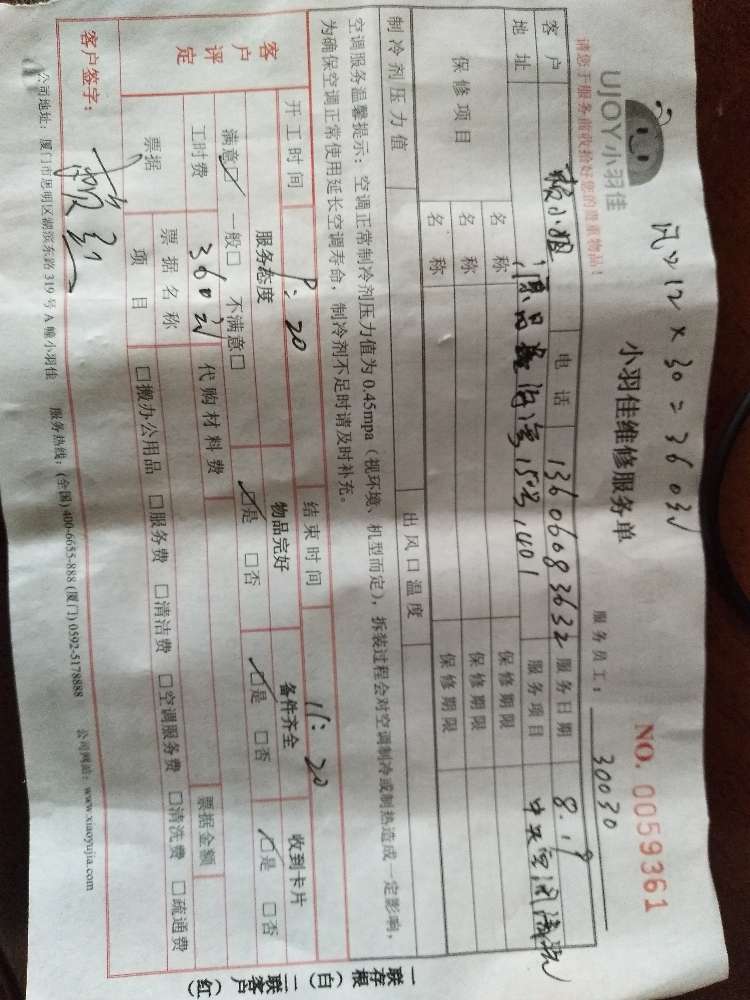 风口12×30=360元
UJOY小羽佳
小羽佳维修服务单
NO. 0059361
请您于服务前收捡好您的贵重物品!
服务员工: 30030
客户 赖小姐 电话 13606083632 服务日期 8.19
地址 15号1401 服务项目 中央空调清洗
保修项目 名称 保修期限
名称 保修期限
名称 保修期限
制冷剂压力值 出风口温度
空调服务温馨提示:空调正常制冷剂压力值为0.45mpa(视环境、机型而定),拆装过程会对空调制冷或制热造成一定影响,
为确保空调正常使用延长空调寿命,制冷剂不足时请及时补充。
开工时间 9:20 结束时间 11:20
客户评定 服务态度 物品完好 备件齐全 收到卡片
满意☑ 一般□ 不满意□ ☑是 □否 ☑是 □否 ☑是 □否
工时费 360元 代购材料费 票据金额
票据 票据名称
项目 □搬办公用品 □服务费 □清洁费 □空调服务费 □清洗费 □疏通费
客户签字:
公司地址:厦门市思明区湖滨东路319号A幢小羽佳 服务热线:(全国)400-6655-888 (厦门)0592-5178888 公司网站:www.xiaoyujia.com
一联存根(白) 二联客户(红)